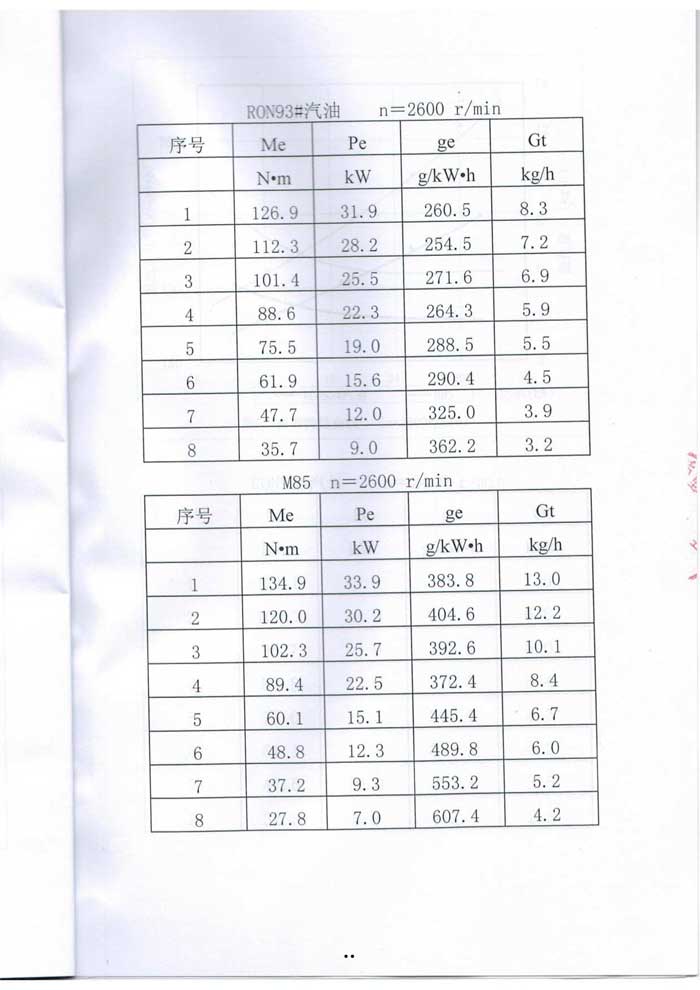 RON93#汽油 n＝2600 r/min
序号 Me Pe ge Gt
N•m kW g/kW•h kg/h
1 126.9 31.9 260.5 8.3
2 112.3 28.2 254.5 7.2
3 101.4 25.5 271.6 6.9
4 88.6 22.3 264.3 5.9
5 75.5 19.0 288.5 5.5
6 61.9 15.6 290.4 4.5
7 47.7 12.0 325.0 3.9
8 35.7 9.0 362.2 3.2
M85 n＝2600 r/min
序号 Me Pe ge Gt
N•m kW g/kW•h kg/h
1 134.9 33.9 383.8 13.0
2 120.0 30.2 404.6 12.2
3 102.3 25.7 392.6 10.1
4 89.4 22.5 372.4 8.4
5 60.1 15.1 445.4 6.7
6 48.8 12.3 489.8 6.0
7 37.2 9.3 553.2 5.2
8 27.8 7.0 607.4 4.2